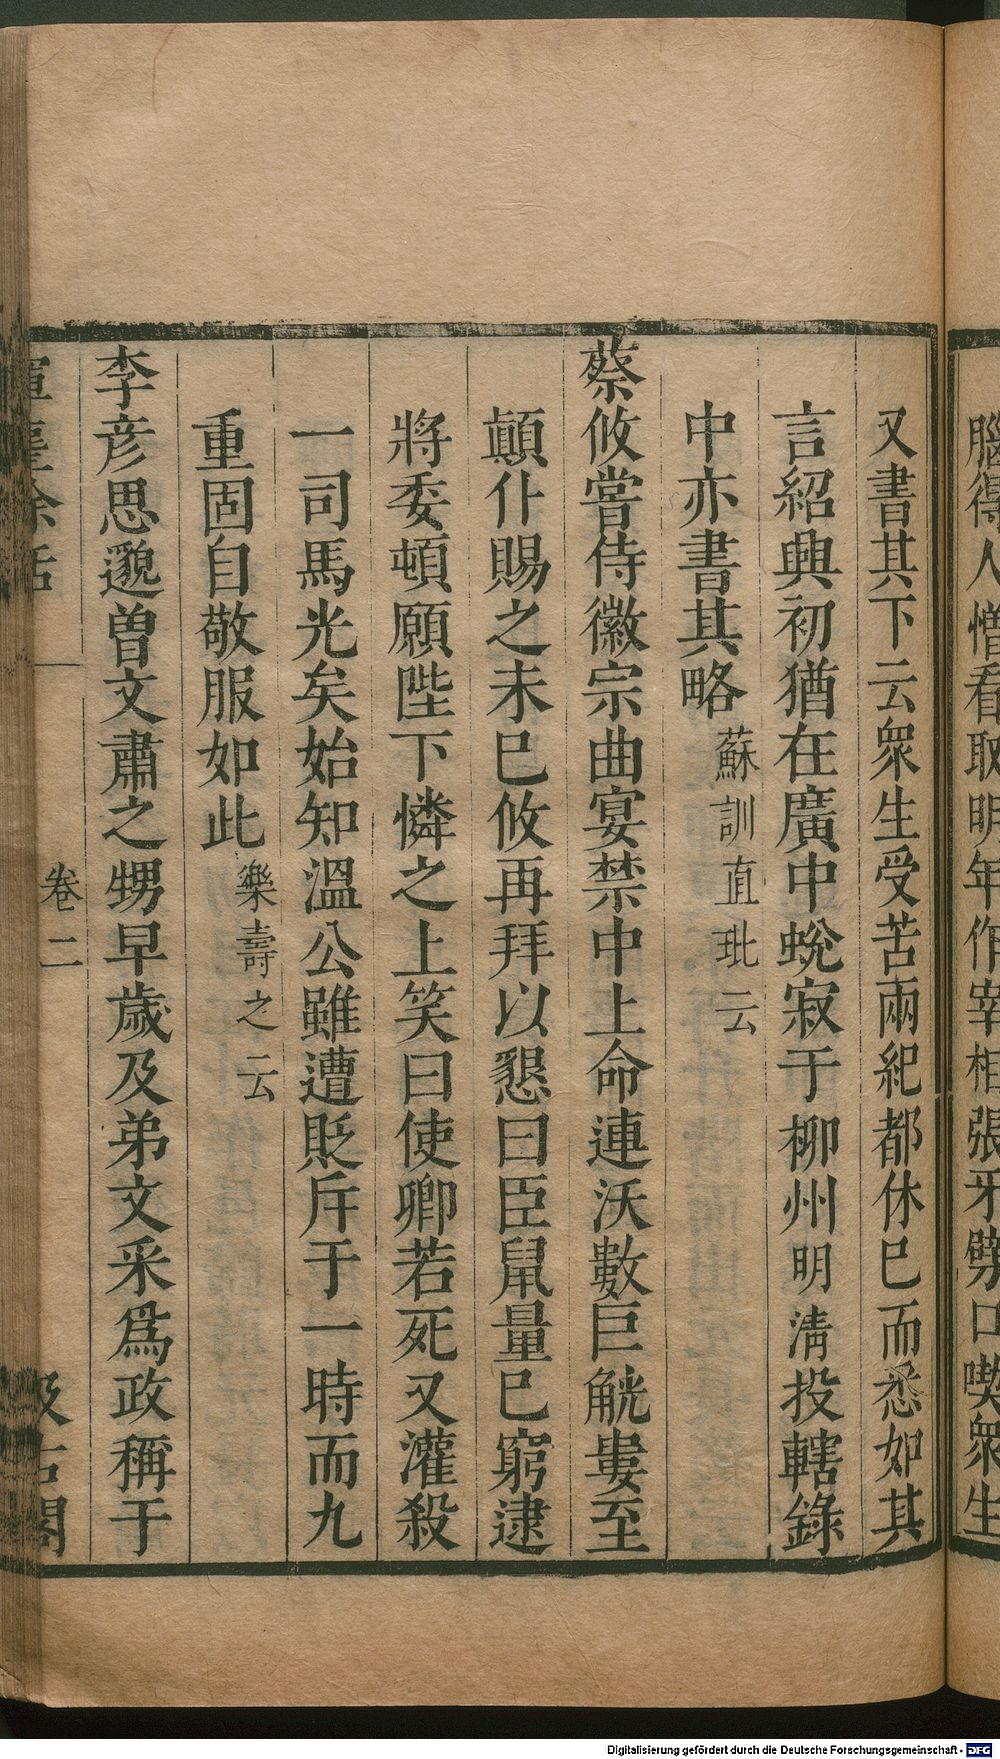 腦得人憎看取明年作宰相張牙劈口喫衆生
又書其下云衆生受苦兩紀都休已而悉如其
言紹興初猶在廣中蛻寂于柳州明淸投轄錄
中亦書其略蘇訓直玭云
蔡攸嘗侍徽宗曲宴禁中上命連沃數巨觥婁至
顚仆賜之未已攸再拜以懇曰臣鼠量已窮逮
將委頓願陛下憐之上笑曰使卿若死又灌殺
一司馬光矣始知溫公雖遭貶斥于一時而九
重固自敬服如此樂壽之云
李彥思邈曾文肅之甥早歲及弟文采爲政稱于
卷二
Digitalisierung gefördert durch die Deutsche Forschungsgemeinschaft - DFG